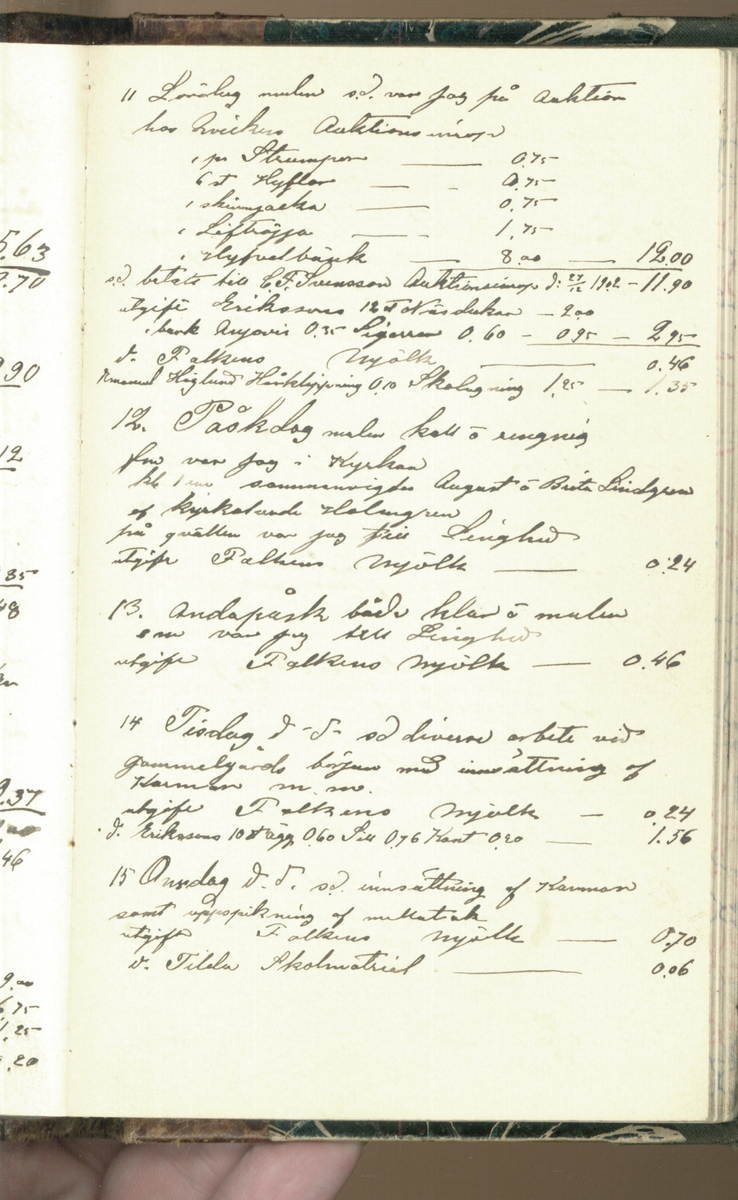 5.63
9.70
90
12
35
48
9.37
46
9.00
6,75
1,25
.20
11 Lördag mulen s.d. var jag på Auktion
hos Auktionsinrop
1 pr Strumpor — 0.75
6 st Hyflar — - 0.75
1 skinnjacka — 0.75
1 Liftröja — 1.75
1 Hyfvelbänk — 8.00 — 12.00
s.d. betalt till C.F. Svensson Auktionsinrop d: 27/12 1902 - 11.90
utgift Eriksons 12 st Näsdukar — 2.00
1 bank Anjovis 0.35 Sigarrer 0.60 — 0.95 — 2.95
d. Falkens Mjölk — 0.46
Emanuel Höglund Hårklippning 0,10 Skolagning 1.25 — 1.35
12. Påskdag mulen kall o regnig
fm var jag i Kyrkan
kl 1 em sammanvigdes August o Brita Lindgren
af Kyrkoherde Holmgren
på qvällen var jag till Linghed
utgift Falkens Mjölk — 0.24
13. Andapåsk både klar o mulen
em var jag till Linghed
utgift Falkens Mjölk — 0.46
14 Tisdag d-d- sd diverse arbete vid
Gammelgårds början med innsättning af
Karmar m.m.
utgift Falkens Mjölk — 0.24
d. Eriksons 10 st ägg 0.60 Sill 0,76 Kant 0.20 — 1.56
15 Onsdag d.d. s.d. innsättning af Karmar
samt uppspikning af mellantak
utgift Falkens Mjölk — 0.70
d. Tilda Skolmatriel — 0.06